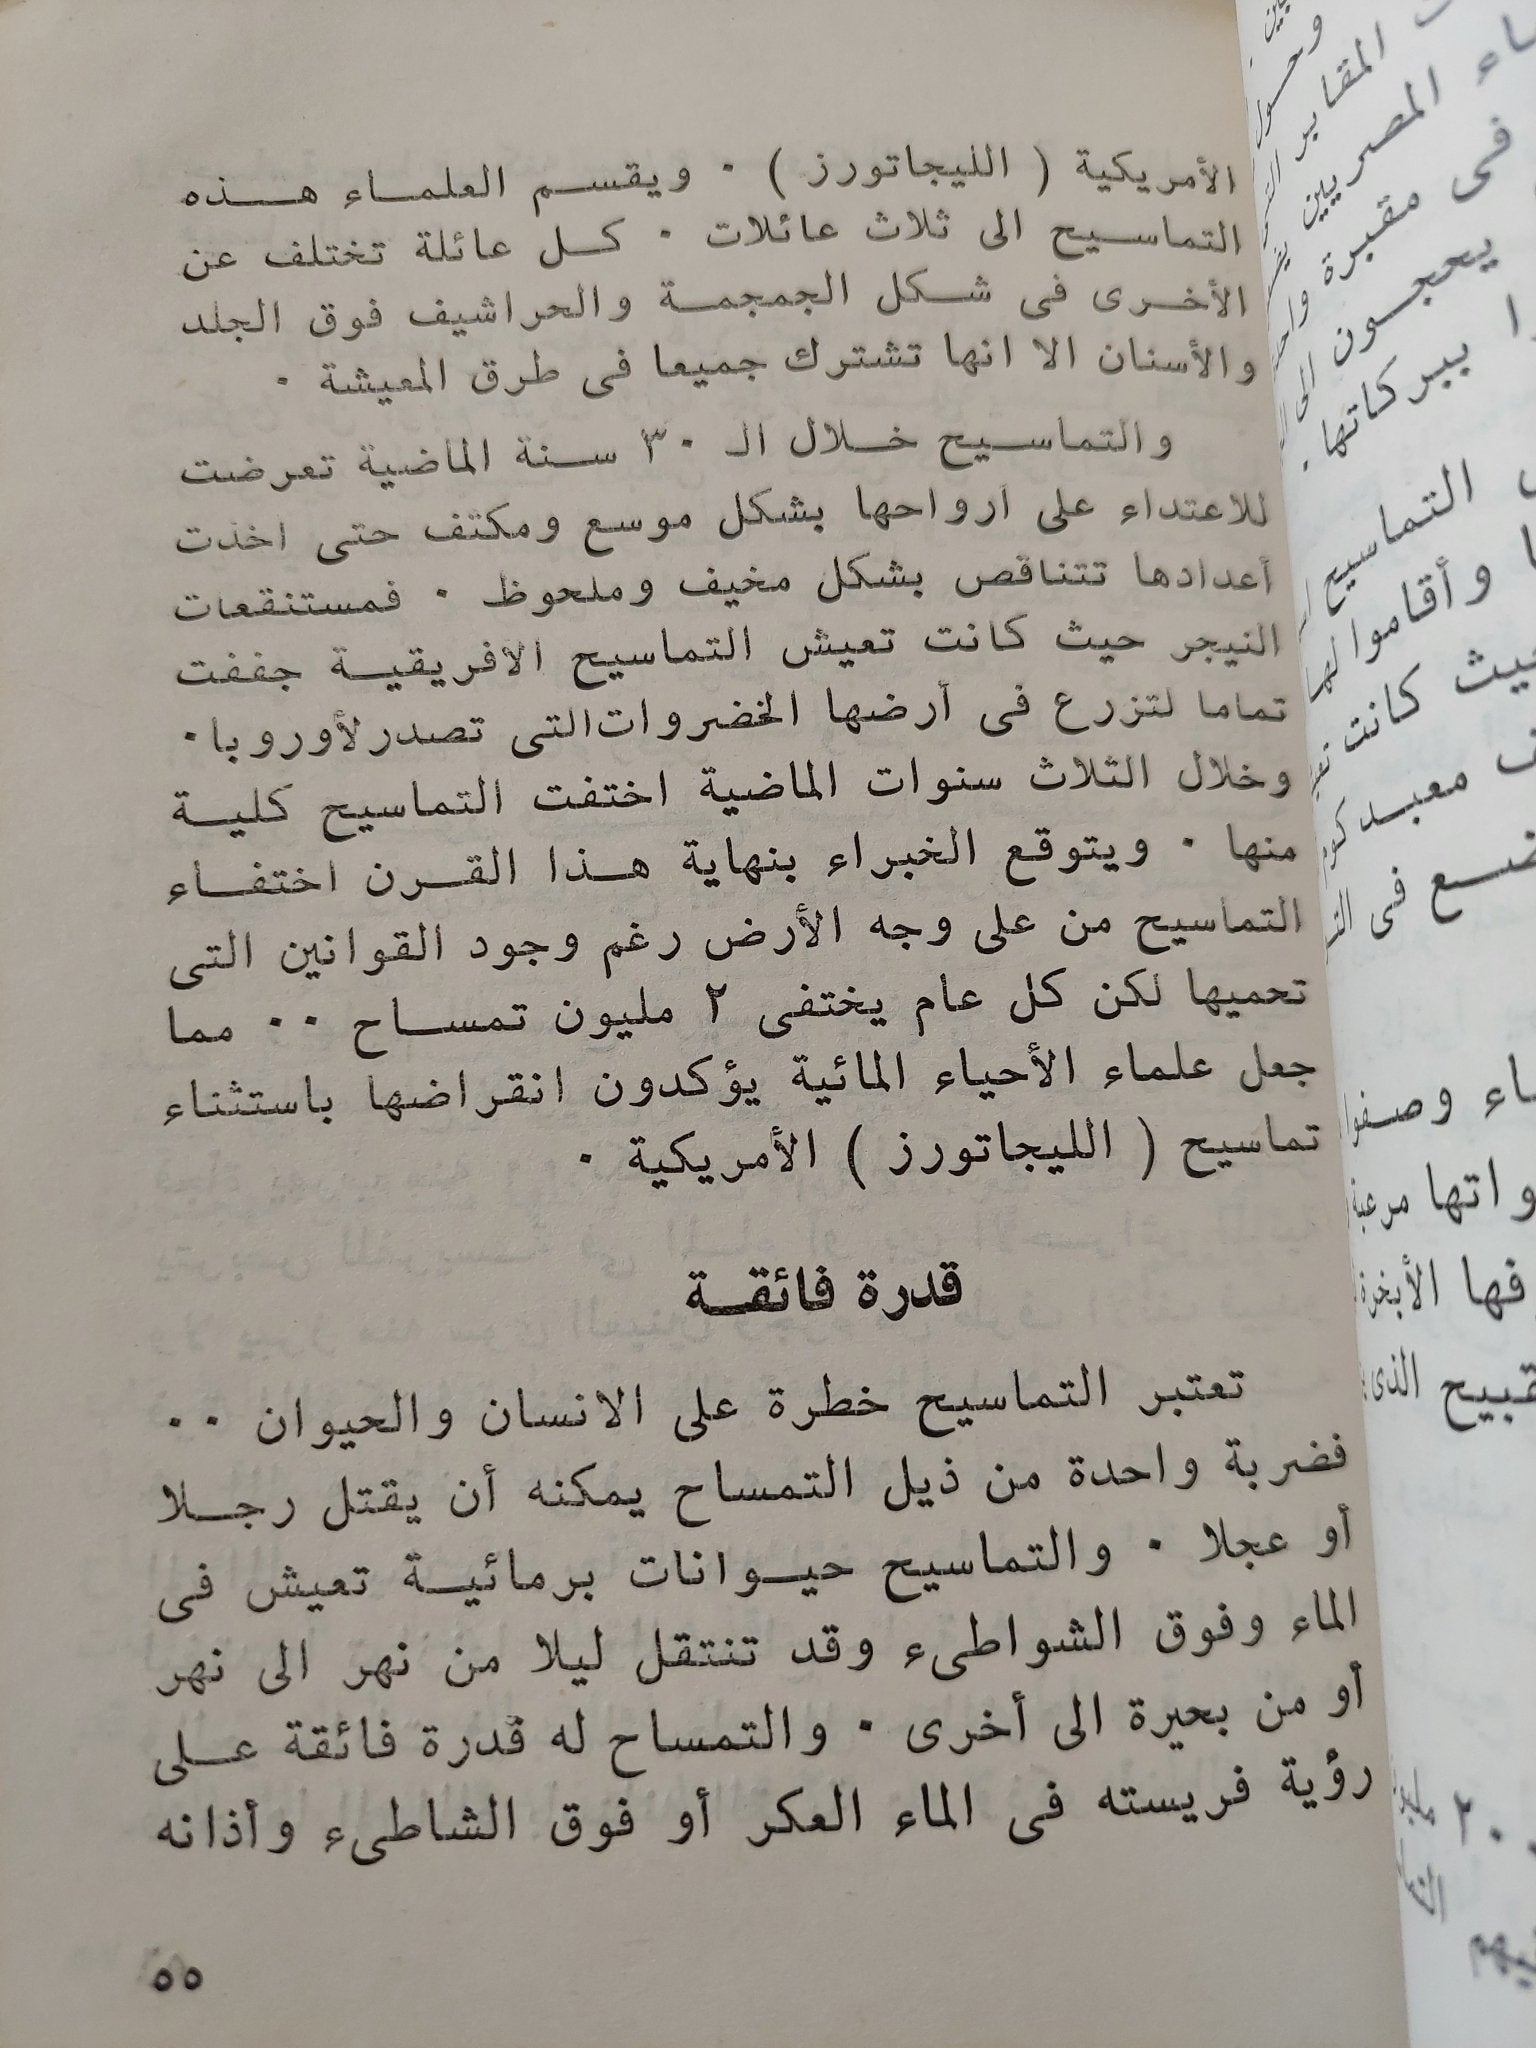 الأمريكية ( الليجاتورز ) . ويقسم العلماء هذه
التماسيح الى ثلاث عائلات . كل عائلة تختلف عن
الأخرى فى شكل الجمجمة والحراشيف فوق الجلد
والأسنان الا انها تشترك جميعا فى طرق المعيشة .
والتماسيح خلال الـ ٣٠ سنة الماضية تعرضت
للاعتداء على ارواحها بشكل موسع ومكثف حتى اخذت
أعدادها تتناقص بشكل مخيف وملحوظ . فمستنقعات
النيجر حيث كانت تعيش التماسيح الافريقية جففت
تماما لتزرع فى أرضها الخضروات التى تصدر لأوروبا .
وخلال الثلاث سنوات الماضية اختفت التماسيح كلية
منها . ويتوقع الخبراء بنهاية هذا القرن اختفاء
التماسيح من على وجه الأرض رغم وجود القوانين التى
تحميها لكن كل عام يختفى ٢ مليون تمساح . . مما
جعل علماء الأحياء المائية يؤكدون انقراضها باستثناء
تماسيح ( الليجاتورز ) الأمريكية .
قدرة فائقة
تعتبر التماسيح خطرة على الانسان والحيوان . .
فضربة واحدة من ذيل التمساح يمكنه أن يقتل رجلا
أو عجلا . والتماسيح حيوانات برمائية تعيش فى
الماء وفوق الشواطىء وقد تنتقل ليلا من نهر الى نهر
أو من بحيرة الى أخرى . والتمساح له قدرة فائقة على
رؤية فريسته فى الماء العكر أو فوق الشاطىء وأذانه
٥٥
وحول
المقابر
المصريين
فى مقبرة
يحجون الى
ببركاتها .
التماسيح
وأقاموا لها
كانت
معبد كوم
فى
وصفوا
مرعبة
الأبخرة
الذى
٢٠